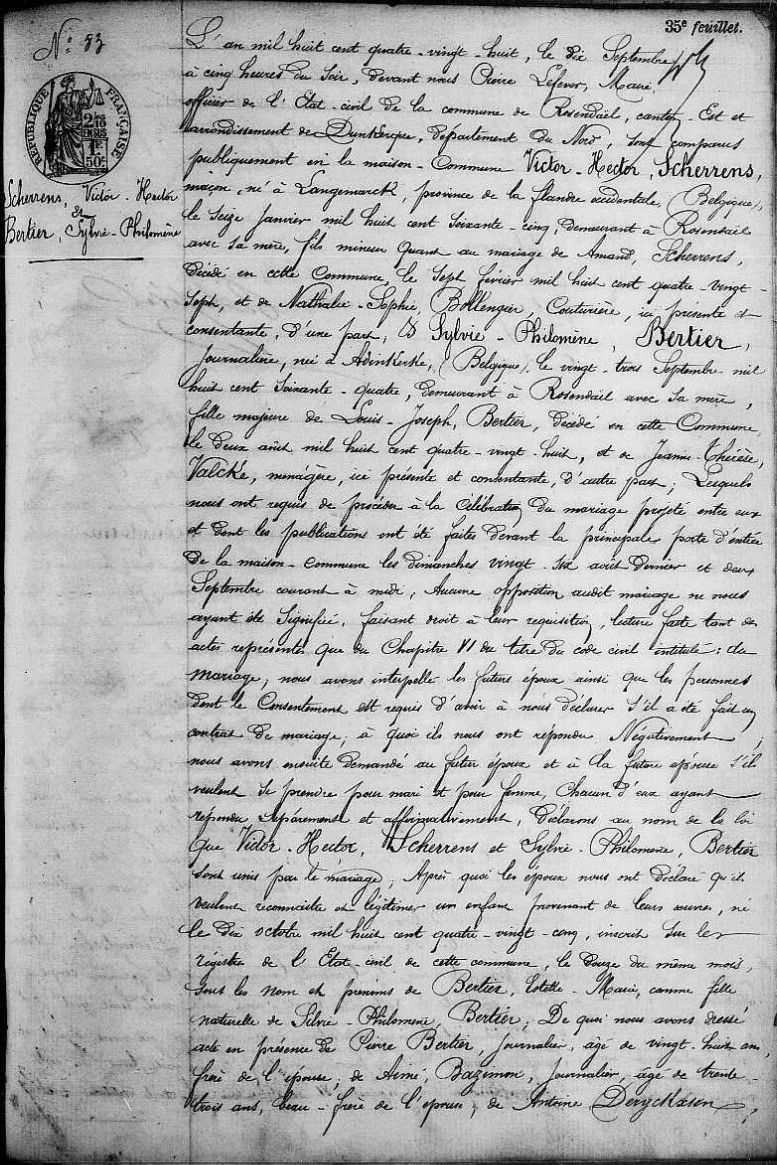 35e feuillet.
N° 53
RÉPUBLIQUE FRANÇAISE
Scherrens, Victor-Hector
et
Bertier, Sylvie-Philomène
L'an mil huit cent quatre-vingt-huit, le dix Septembre
à cinq heures du soir, devant nous Pierre Lefever, Maire,
officier de l'Etat-civil de la commune de Rosendaël, canton-Est et
arrondissement de Dunkerque, département du Nord, sont comparus
publiquement en la maison-Commune Victor-Hector, Scherrens,
maçon, né à Langemarck, province de la flandre occidentale, (Belgique),
le seize Janvier mil huit cent soixante-cinq, demeurant à Rosendaël
avec sa mère, fils mineur quant au mariage de Amand, Scherrens,
décédé en cette Commune, le sept février mil huit cent quatre-vingt-
sept, et de Nathalie-Sophie, Bollengier, Couturière, ici présente et
consentante, d'une part, & Sylvie-Philomène, Bertier,
Journalière, née à Adinkerke, (Belgique), le vingt-trois Septembre mil
huit cent soixante-quatre, demeurant à Rosendaël avec sa mère,
fille majeure de Louis-Joseph, Bertier, décédé en cette Commune,
le deux août mil huit cent quatre-vingt-huit, et de Jeanne-Thérèse,
Valcke, ménagère, ici présente et consentante, d'autre part; Lesquels
nous ont requis de procéder à la célébration du mariage projeté entre eux
et dont les publications ont été faites devant la principale porte d'entrée
de la maison-Commune les dimanches vingt-six août dernier et deux
Septembre courant à midi; Aucune opposition audit mariage ne nous
ayant été signifiée, faisant droit à leur requisition, lecture faite tant des
actes représentés que du Chapitre VI du titre du code civil intitulé: du
Mariage, nous avons interpellé les futurs époux ainsi que les personnes
dont le Consentement est requis d'avoir à nous déclarer s'il a été fait un
contrat de mariage; à quoi ils nous ont répondu Négativement;
nous avons ensuite demandé au futur époux et à la future épouse s'ils
veulent se prendre pour mari et pour femme, chacun d'eux ayant
répondu séparément et affirmativement, Déclarons au nom de la loi
que Victor-Hector, Scherrens et Sylvie-Philomène, Bertier
sont unis par le mariage; Après quoi les époux nous ont déclaré qu'ils
veulent reconnaître et légitimer un enfant provenant de leurs œuvres, né
le dix octobre mil huit cent quatre-vingt-cinq, inscrit sur les
régistre de l'Etat-civil de cette commune, le douze du même mois,
sous les nom et prénoms de Bertier, Marie, comme fille
naturelle de Silvie-Philomène, Bertier; De quoi nous avons dressé
acte en présence de Pierre Bertier, journalier, âgé de vingt-huit ans,
frère de l'épouse, de Aimé, Bazimon, journalier, âgé de trente-
trois ans, beau-frère de l'épouse, de Antoine Deryckxsen,